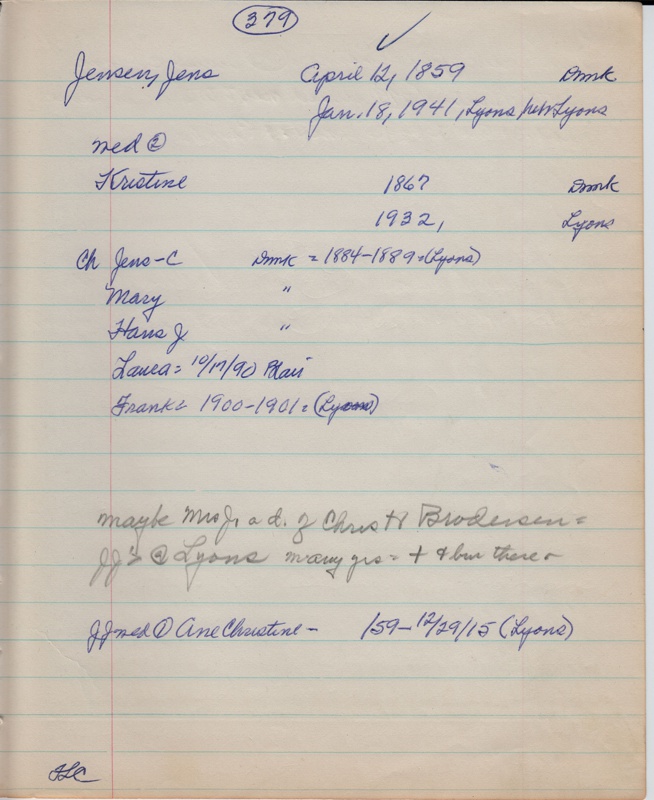 379
Jensen, Jens April 12, 1859 Dmk
Jan. 18, 1941, Lyons Lyons
med ②
Kristine 1867 Dmk
1932, Lyons
Ch Jens-C Dmk = 1884-1889=(Lyons)
Mary "
Hans J "
Laura= 10/17/90 Blair
Frank= 1900-1901=(Lyons)
maybe Mrs J, a d. of Chris H Brodersen=
JJ's @ Lyons many yrs= + & bur there-
JJ med ① Ane Christine- /59-12/29/15 (Lyons)